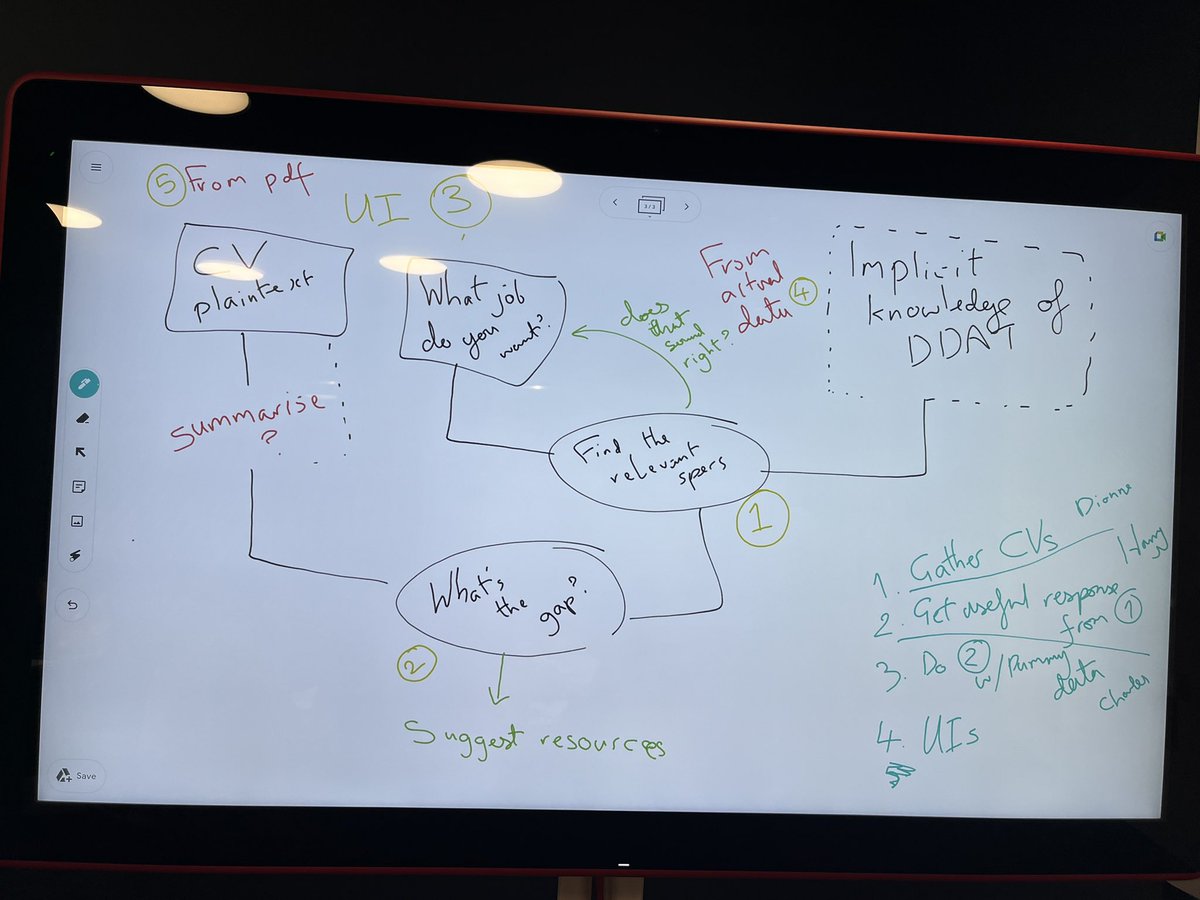 ⑤ From pdf
UI ③
3/3
CV
plaintext
What job
do you
want?
does
that
sound
right?
From
actual
data ④
Implicit
knowledge of
DDAT
summarise
?
Find the
relevant
spers
①
What's
the
gap?
②
Suggest resources
1. Gather CVs Dionne
2. Get useful response Harry
from ①
3. Do ② w/Dummy
data
Charles
4. UIs
Save